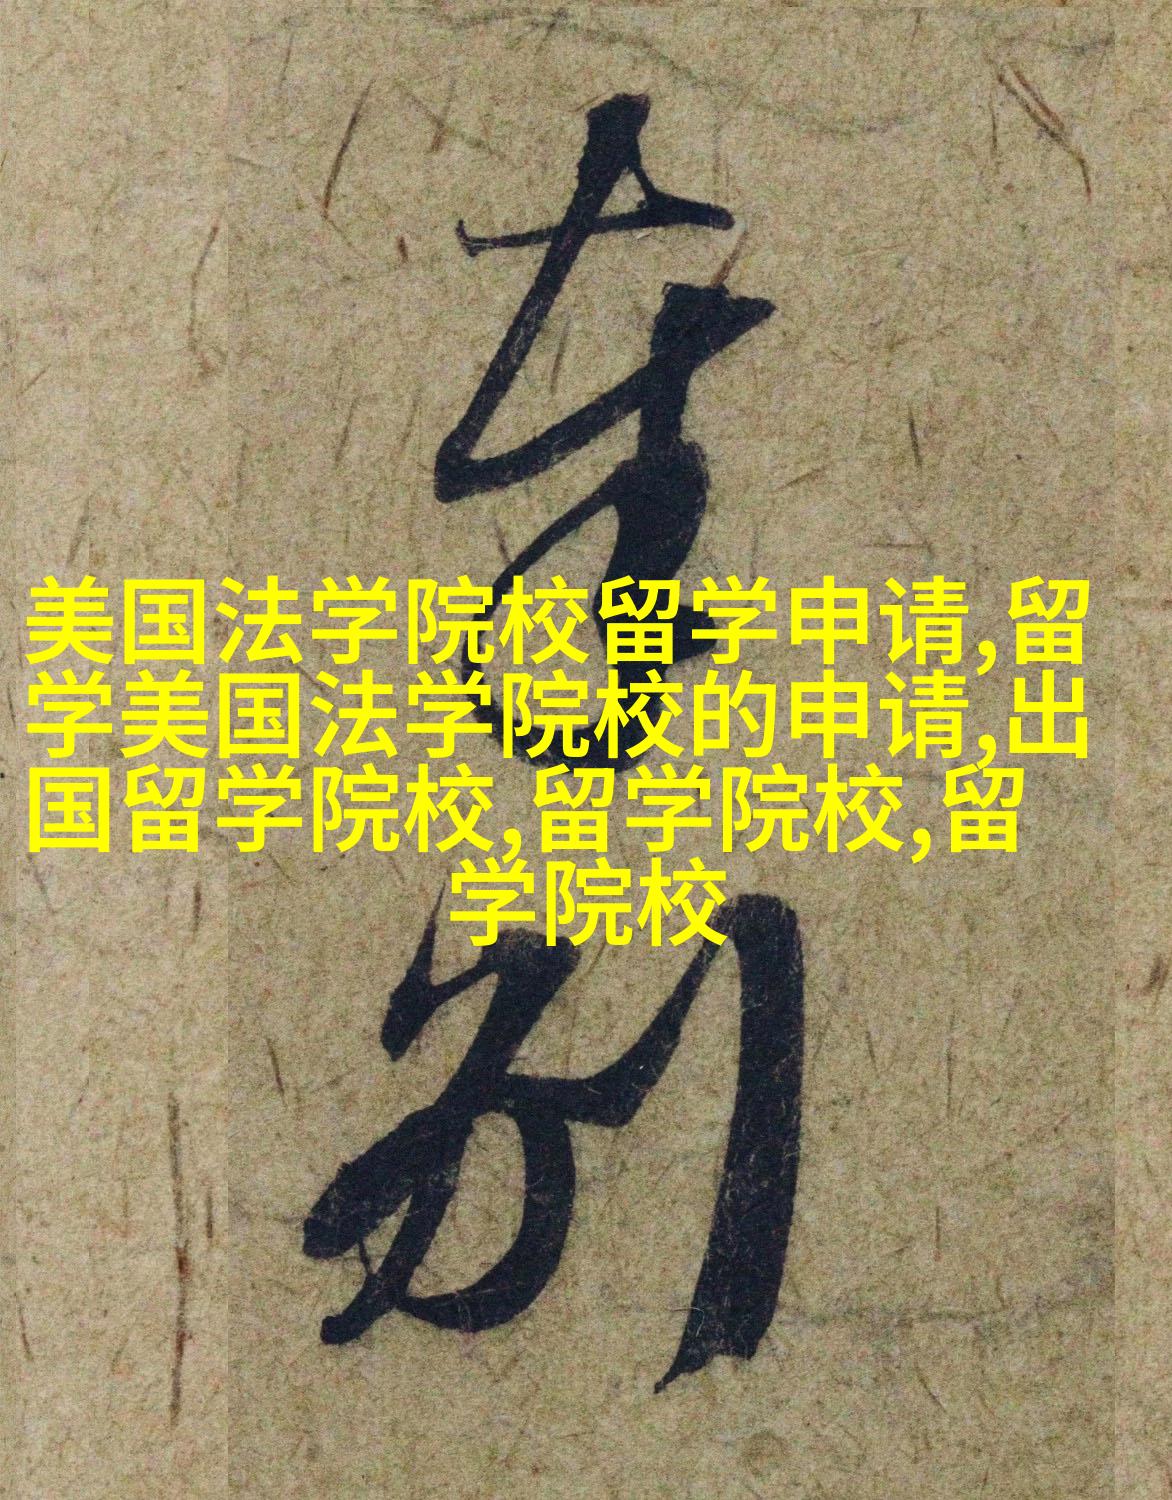 美国法学院校留学申请,留
学美国法学院校的申请,出
国留学院校,留学院校,留
学院校